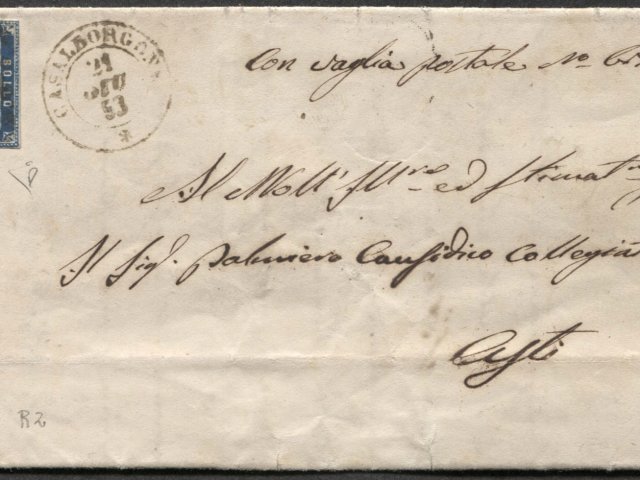 BOLLO
CASALBORGONE
21
GIU
53
Con vaglia postale No
Al Molt' Illre ed Stimat
Il Sigr. Palmiero Causidico Collegia
Asti
R2